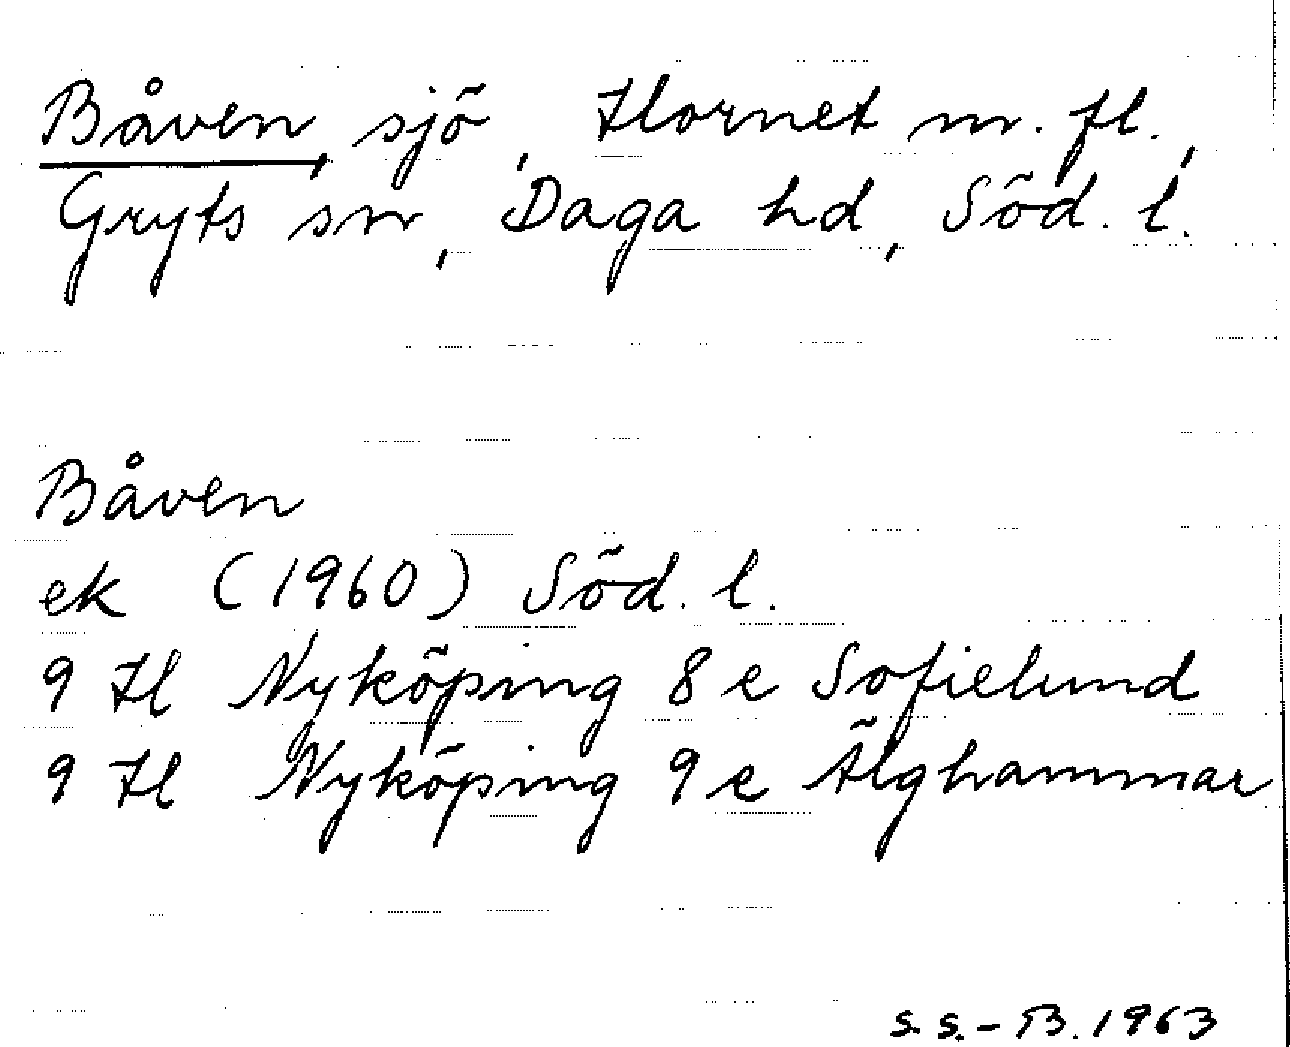 Båven, sjö, Hornet m. fl.,
Gryts sn, Daga hd, Söd. l.
Båven
ek (1960) Söd. l.
9 H Nyköping 8 e Sofielund
9 H Nyköping 9 e Älghammar
S. S. - B. 1963